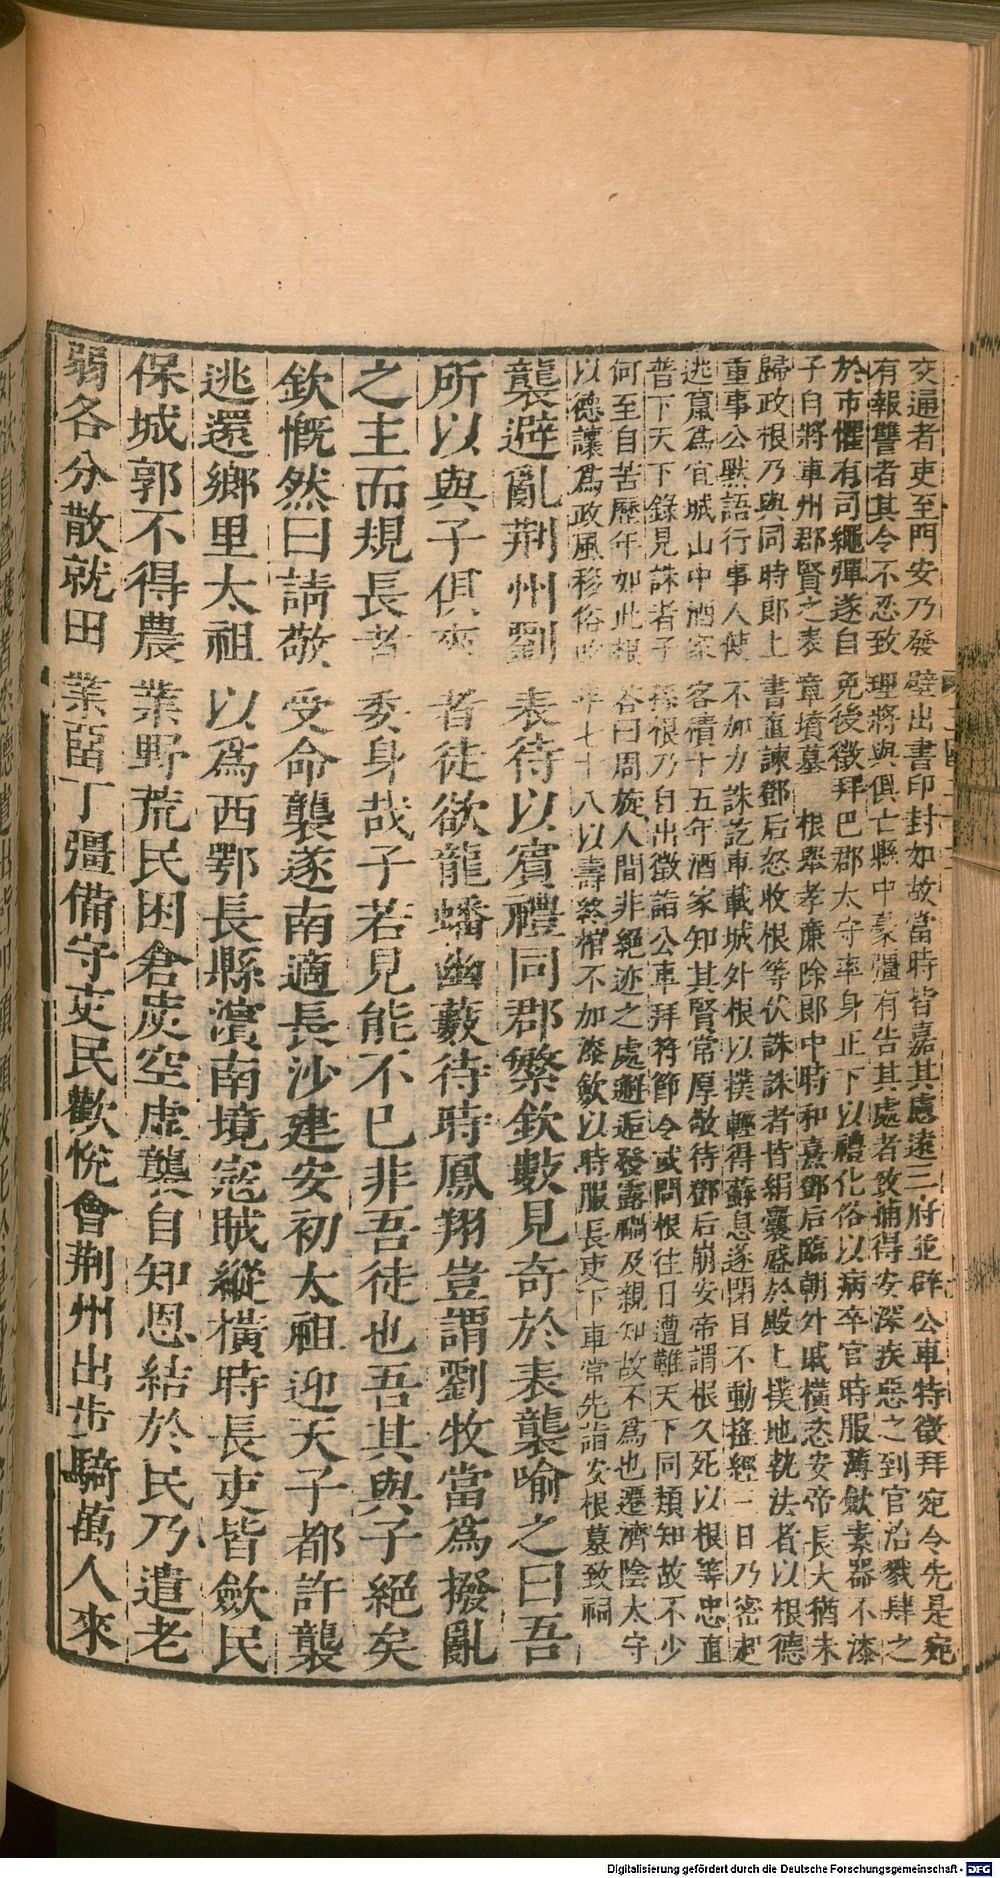 交通者吏至門安乃發壁出書印封如故當時皆嘉其慮遠三府並辟公車特徵拜宛令先是宛
有報讐者其令不忍致理將與俱亡縣中豪彊有告其處者致捕得安深疾惡之到官治戮肆之
於市懼有司繩彈遂自免後徵拜巴郡太守率身正下以禮化俗以病卒官時服薄斂素器不漆
子自將車州郡賢之表章墳墓　根舉孝廉除郎中時和熹鄧后臨朝外戚橫恣安帝長大猶未
歸政根乃與同時郎上書直諫鄧后怒收根等伏誅誅者皆絹囊盛於殿上撲地執法者以根德
重事公默語行事人使不加力誅訖車載城外根以撲輕得蘇息遂閉目不動搖經三日乃密起
逃竄爲宜城山中酒家客積十五年酒家知其賢常厚敬待鄧后崩安帝謂根久死以根等忠直
普下天下錄見誅者子孫根乃自出徵詣公車拜符節令或問根往日遭難天下同類知故不少
何至自苦歷年如此根荅曰周旋人間非絕迹之處邂逅發露禍及親知故不爲也遷濟陰太守
以德讓爲政風移俗改年七十八以壽終棺不加漆斂以時服長吏下車常先詣安根墓致祠
襲避亂荆州劉表待以賓禮同郡繁欽數見奇於表襲喻之曰吾
所以與子俱來者徒欲龍蟠幽藪待時鳳翔豈謂劉牧當爲撥亂
之主而規長者委身哉子若見能不已非吾徒也吾其與子絕矣
欽慨然曰請敬受命襲遂南適長沙建安初太祖迎天子都許襲
逃還鄉里太祖以爲西鄂長縣濱南境寇賊縱橫時長吏皆斂民
保城郭不得農業野荒民困倉庾空虛襲自知恩結於民乃遣老
弱各分散就田業留丁彊備守吏民歡悅會荆州出步騎萬人來
Digitalisierung gefördert durch die Deutsche Forschungsgemeinschaft - DFG